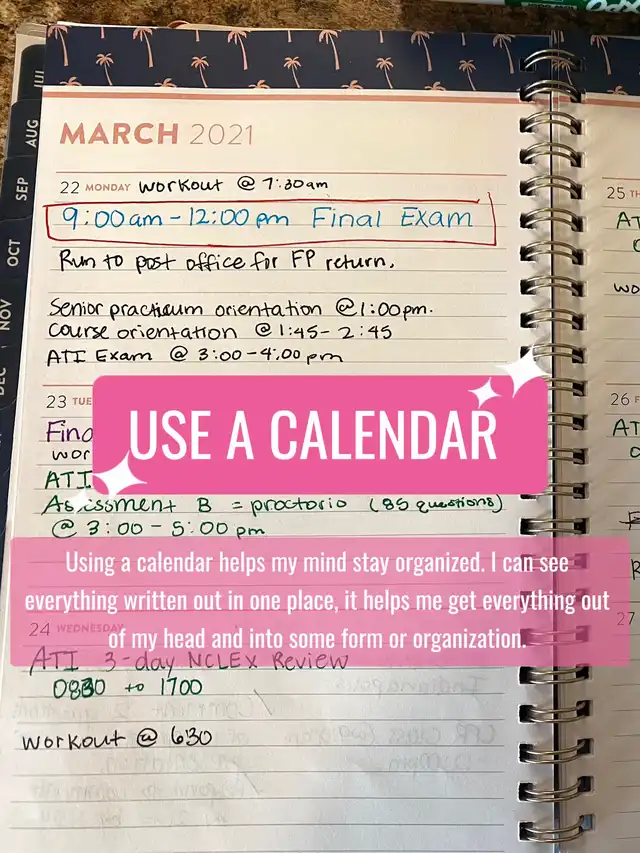 JUL
AUG
SEP
OCT
NOV
DEC
MARCH 2021
22 MONDAY workout @ 7:30am
9:00am - 12:00pm Final Exam
Run to post office for FP return.
Senior practicum orientation @ 1:00pm.
Course orientation @ 1:45 - 2:45
ATI Exam @ 3:00 - 4:00 pm
23 TUE
USE A CALENDAR
ATI
Assessment B = proctorio (85 questions)
@ 3:00 - 5:00 pm
Using a calendar helps my mind stay organized. I can see
everything written out in one place, it helps me get everything out
of my head and into some form or organization.
24 WEDNESDAY
ATI 3-day NCLEX Review
0830 to 1700
workout @ 630
25 TH
AT
wo
26 F
AT
27